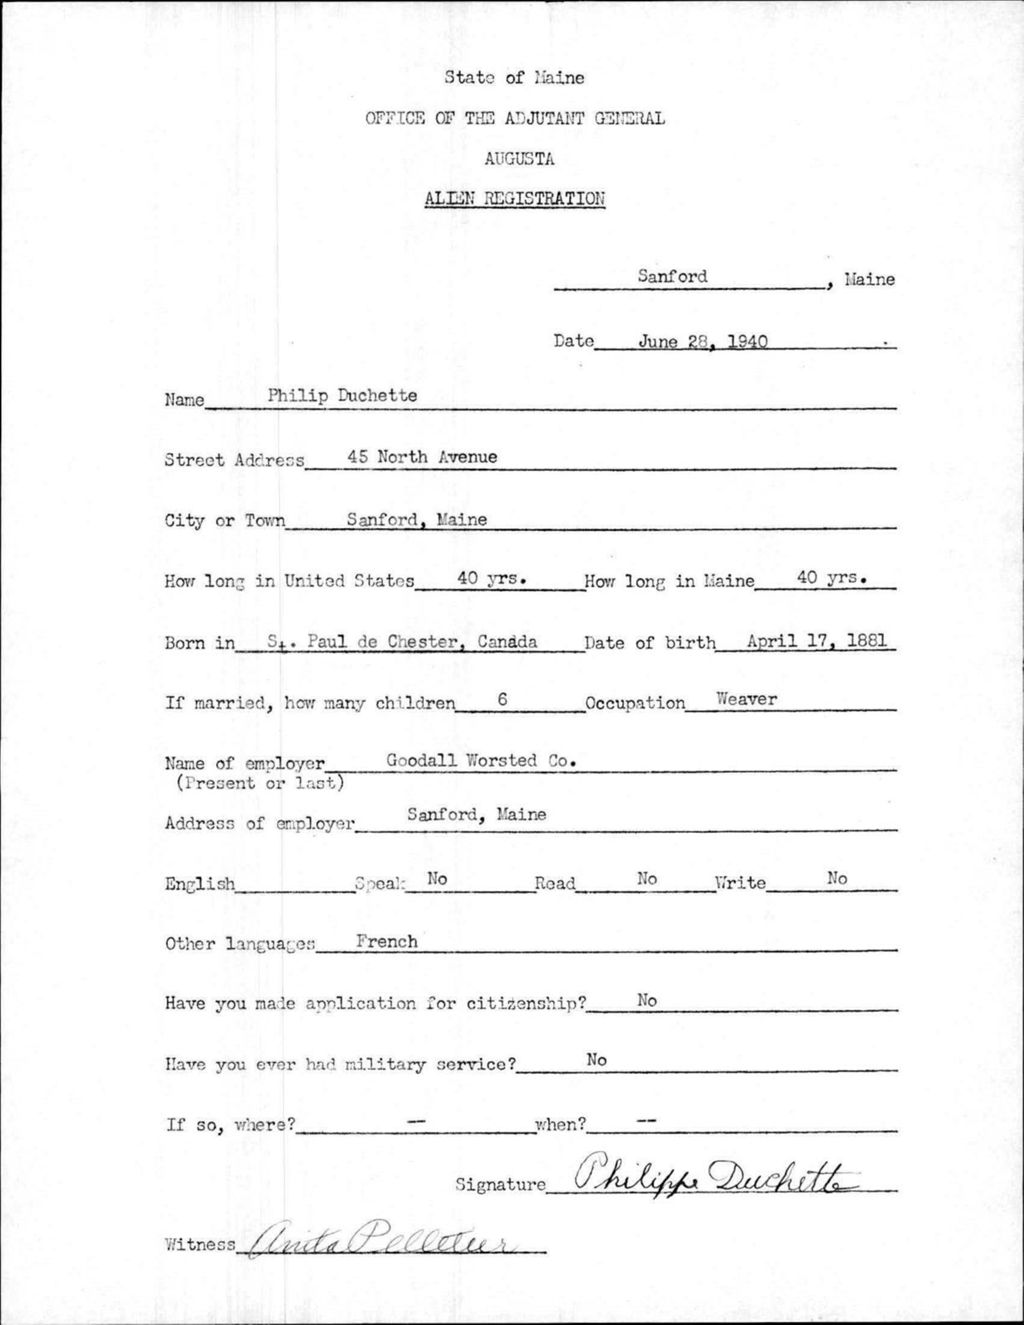 State of Maine
OFFICE OF THE ADJUTANT GENERAL
AUGUSTA
ALIEN REGISTRATION
Sanford, Maine
Date June 28, 1940
Name Philip Duchette
Street Address 45 North Avenue
City or Town Sanford, Maine
How long in United States 40 yrs. How long in Maine 40 yrs.
Born in St. Paul de Chester, Canada Date of birth April 17, 1881
If married, how many children 6 Occupation Weaver
Name of employer Goodall Worsted Co.
(Present or last)
Address of employer Sanford, Maine
English Speak No Read No Write No
Other languages French
Have you made application for citizenship? No
Have you ever had military service? No
If so, where? -- when? --
Signature Philippe Duchette
Witness Anita Pelletier